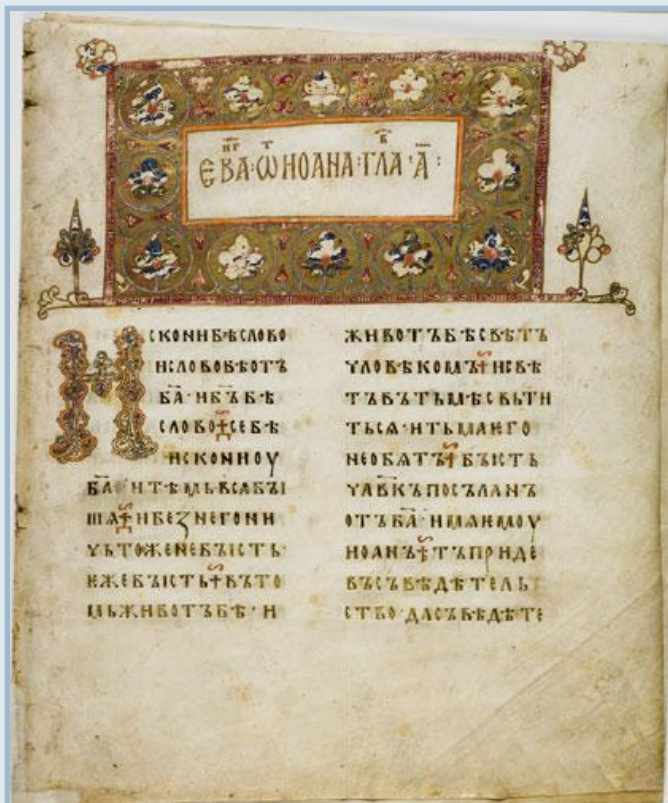 ЕВАⷩ҇ⷢ҇·Ѿ ИОАНА·ГЛАⷡ҇·А҃:
ИСКОНИ БѢ СЛОВО
И СЛОВО БѢ ОТЪ
Б҃А·И Б҃Ъ БѢ
СЛОВО СЕ БѢ
ИСКОНИ ОУ
Б҃А И ТѢМЬ ВСѦ БꙐ
ШѦ И БЕЗ НЕГО НИ
ЧЬТОЖЕ НЕ БꙐСТЬ·
ЕЖЕ БꙐСТЬ ВЪ ТО
МЬ ЖИВОТЪ БѢ·И
ЖИВОТЪ БѢ СВѢТЪ
ЧЛОВѢКОМЪ И СВѢ
ТЪ ВЪ ТЬМѢ СВЬТИ
ТЬСѦ·И ТЬМА ѤГО
НЕ ОБѦТЪ БꙐСТЬ
ЧЛ҃ВКЪ ПОСЪЛАНЪ
ОТЪ Б҃А·ИМѦ ѤМОУ
ИОАНЪ ТЪ ПРИДЕ
ВЪ СЪВѢДѢТЕЛЬ
СТВО·ДА СЪВѢДѢТЕ